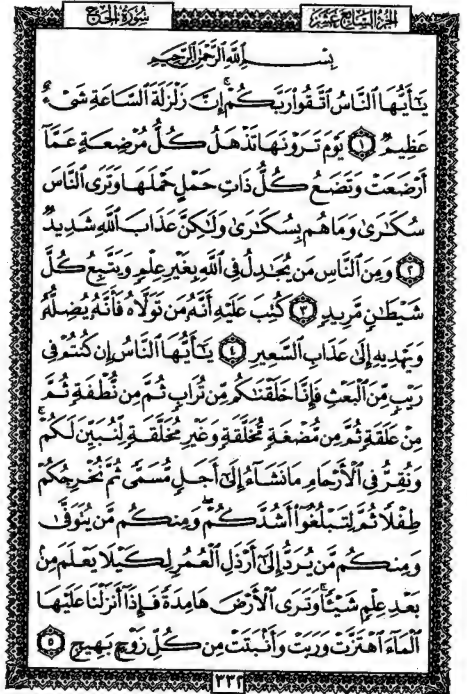 الجزء السابع عشر
سورة الحج
بِسْمِ ٱللَّهِ ٱلرَّحْمَٰنِ ٱلرَّحِيمِ
يَٰٓأَيُّهَا ٱلنَّاسُ ٱتَّقُوا۟ رَبَّكُمْ ۚ إِنَّ زَلْزَلَةَ ٱلسَّاعَةِ شَىْءٌ
عَظِيمٌ ۝١ يَوْمَ تَرَوْنَهَا تَذْهَلُ كُلُّ مُرْضِعَةٍ عَمَّآ
أَرْضَعَتْ وَتَضَعُ كُلُّ ذَاتِ حَمْلٍ حَمْلَهَا وَتَرَى ٱلنَّاسَ
سُكَٰرَىٰ وَمَا هُم بِسُكَٰرَىٰ وَلَٰكِنَّ عَذَابَ ٱللَّهِ شَدِيدٌ
۝٢ وَمِنَ ٱلنَّاسِ مَن يُجَٰدِلُ فِى ٱللَّهِ بِغَيْرِ عِلْمٍ وَيَتَّبِعُ كُلَّ
شَيْطَٰنٍ مَّرِيدٍ ۝٣ كُتِبَ عَلَيْهِ أَنَّهُۥ مَن تَوَلَّاهُ فَأَنَّهُۥ يُضِلُّهُۥ
وَيَهْدِيهِ إِلَىٰ عَذَابِ ٱلسَّعِيرِ ۝٤ يَٰٓأَيُّهَا ٱلنَّاسُ إِن كُنتُمْ فِى
رَيْبٍ مِّنَ ٱلْبَعْثِ فَإِنَّا خَلَقْنَٰكُم مِّن تُرَابٍ ثُمَّ مِن نُّطْفَةٍ ثُمَّ
مِنْ عَلَقَةٍ ثُمَّ مِن مُّضْغَةٍ مُّخَلَّقَةٍ وَغَيْرِ مُخَلَّقَةٍ لِّنُبَيِّنَ لَكُمْ ۚ
وَنُقِرُّ فِى ٱلْأَرْحَامِ مَا نَشَآءُ إِلَىٰٓ أَجَلٍ مُّسَمًّى ثُمَّ نُخْرِجُكُمْ
طِفْلًا ثُمَّ لِتَبْلُغُوٓا۟ أَشُدَّكُمْ ۖ وَمِنكُم مَّن يُتَوَفَّىٰ
وَمِنكُم مَّن يُرَدُّ إِلَىٰٓ أَرْذَلِ ٱلْعُمُرِ لِكَيْلَا يَعْلَمَ مِنۢ
بَعْدِ عِلْمٍ شَيْـًٔا ۚ وَتَرَى ٱلْأَرْضَ هَامِدَةً فَإِذَآ أَنزَلْنَا عَلَيْهَا
ٱلْمَآءَ ٱهْتَزَّتْ وَرَبَتْ وَأَنۢبَتَتْ مِن كُلِّ زَوْجٍۭ بَهِيجٍ ۝٥
٣٣٢